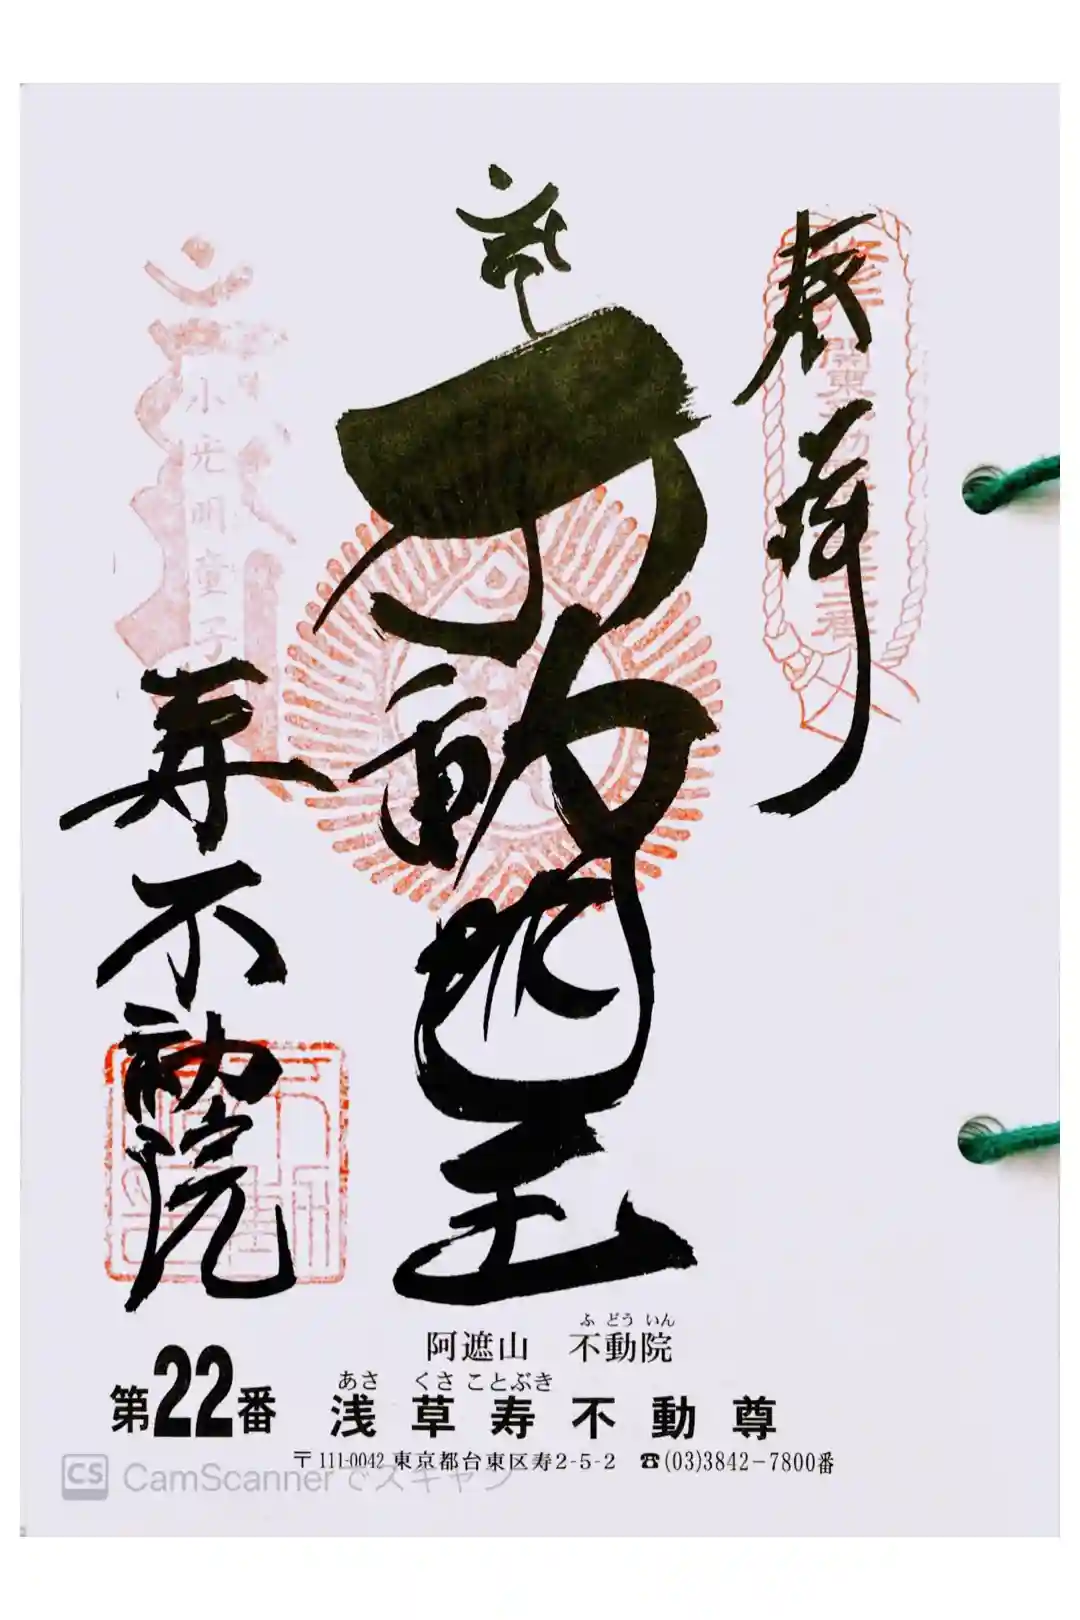 奉拝
不動明王
寿不動院
小光明童子
阿遮山 不動院
ふ どう いん
第22番 浅草寿不動尊
あさ くさ ことぶき
〒111-0042 東京都台東区寿2-5-2 ☎(03)3842-7800番
CS CamScannerでスキャン